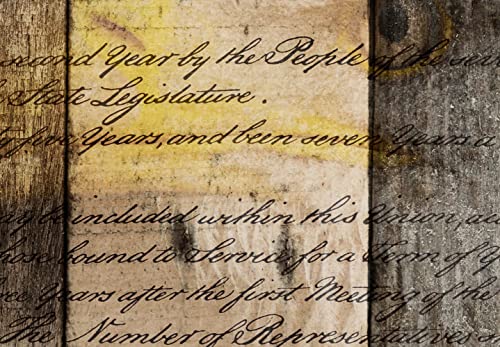 second Year by the People of the seve
State Legislature.
ty five Years, and been seven Years a
ay be included within this Union, ac
hose bound to Service for a Term of Y
ree Years after the first Meeting of the
The Number of Representatives s